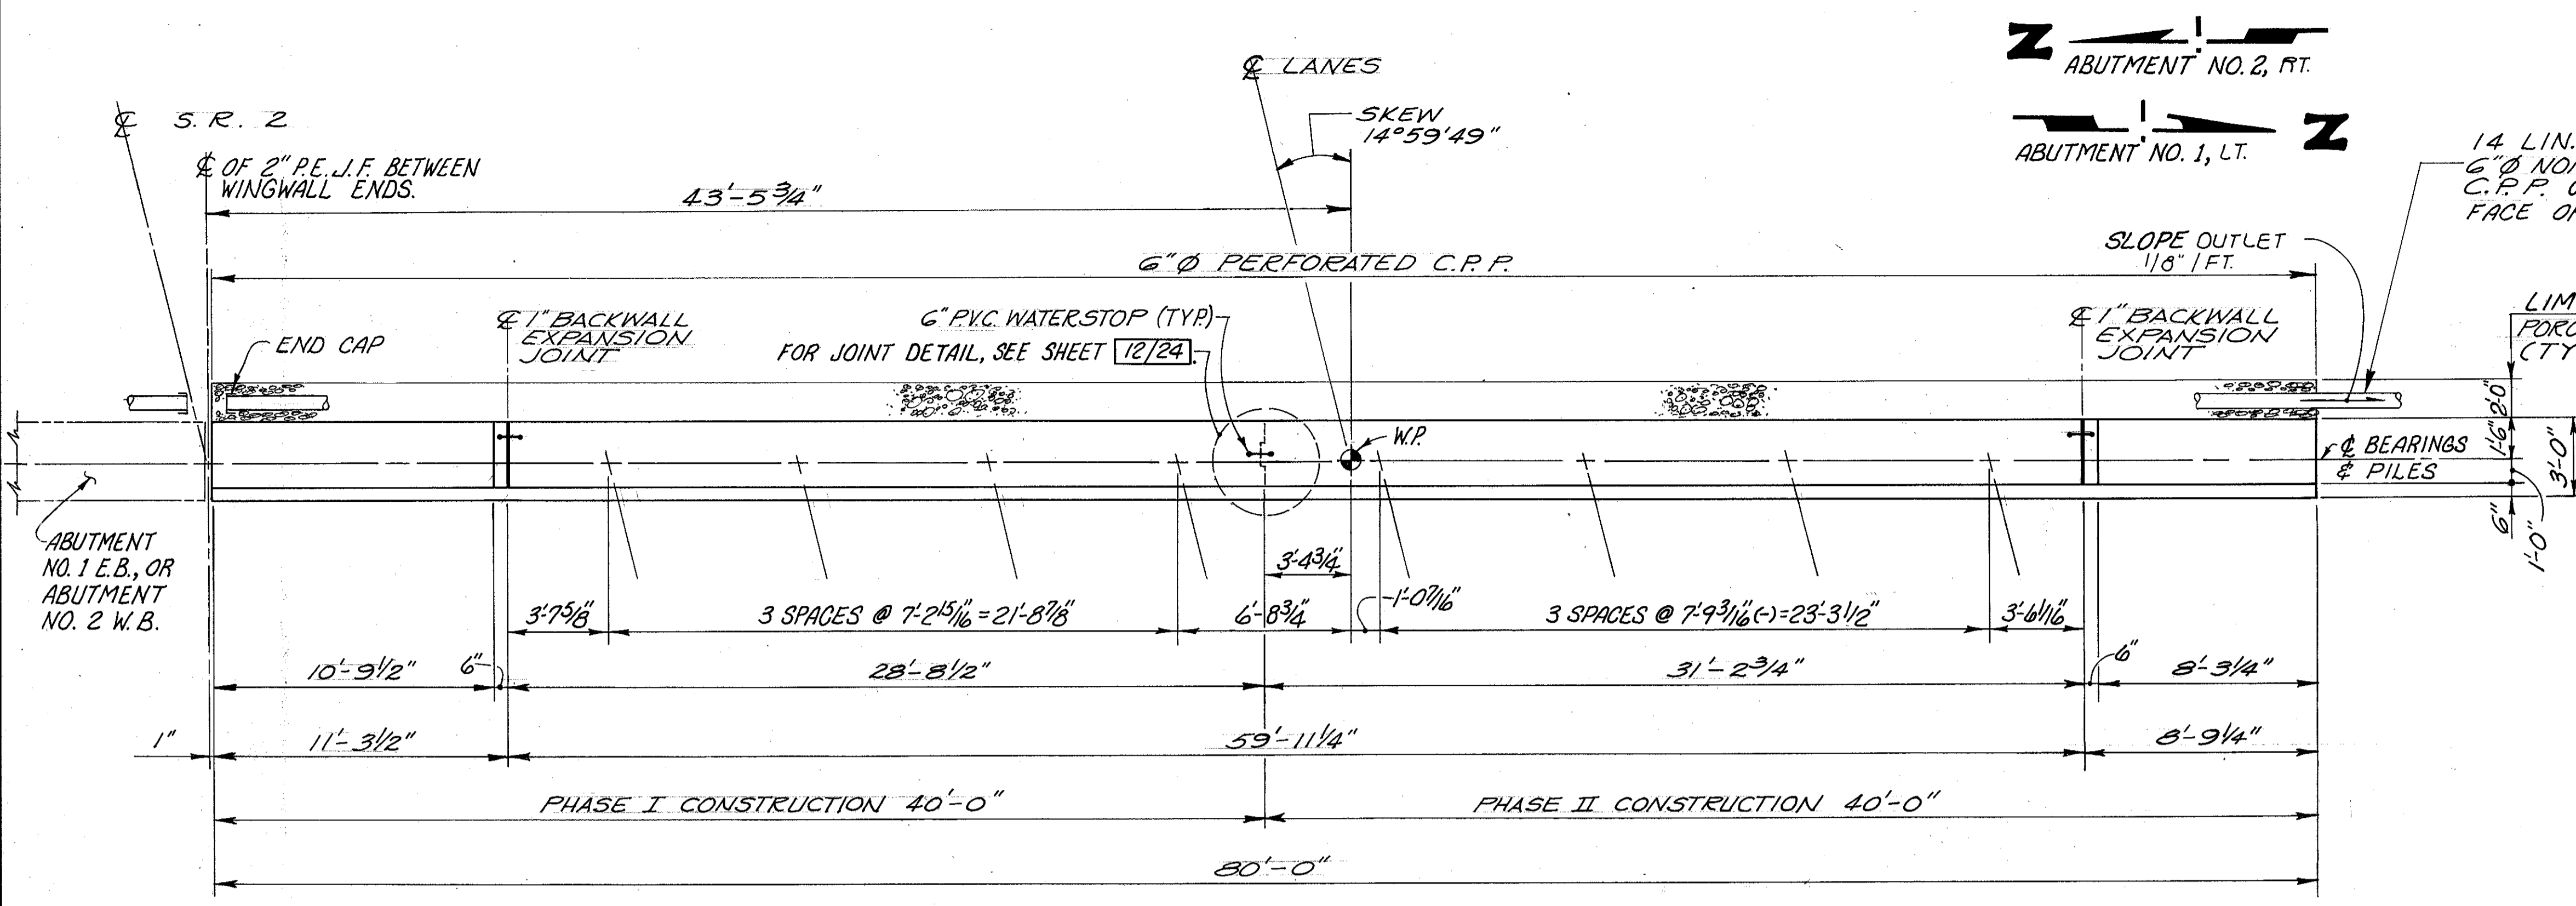 Z
ABUTMENT NO. 2, RT.
ABUTMENT NO. 1, LT.
Z
℄ LANES
SKEW
14°59'49"
℄ S.R. 2
℄ OF 2" P.E.J.F. BETWEEN
WINGWALL ENDS.
43'-5 3/4"
14 LIN.
6"Ø
C.P.P.
FACE
SLOPE OUTLET
1/8" / FT.
6"Ø PERFORATED C.P.P.
END CAP
℄ 1" BACKWALL
EXPANSION
JOINT
6" P.V.C. WATERSTOP (TYP.)
FOR JOINT DETAIL, SEE SHEET 12/24.
℄ 1" BACKWALL
EXPANSION
JOINT
W.P.
2'-0"
1'-6"
3'-0"
6"
1'-0"
℄ BEARINGS
& PILES
ABUTMENT
NO. 1 E.B., OR
ABUTMENT
NO. 2 W.B.
3'-4 3/4"
3'-7 5/8"
3 SPACES @ 7'-2 15/16" = 21'-8 7/8"
6'-8 3/4"
1'-0 7/16"
3 SPACES @ 7'-9 3/16" (-) = 23'-3 1/2"
3'-6 1/16"
10'-9 1/2"
6"
28'-8 1/2"
31'-2 3/4"
6"
8'-3 1/4"
1"
11'-3 1/2"
59'-11 1/4"
8'-9 1/4"
PHASE I CONSTRUCTION 40'-0"
PHASE II CONSTRUCTION 40'-0"
80'-0"